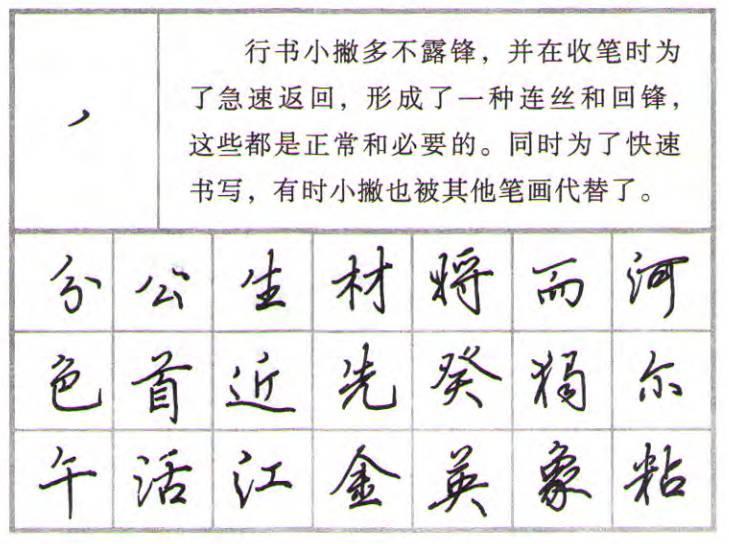 行书小撇多不露锋，并在收笔时为
了急速返回，形成了一种连丝和回锋，
这些都是正常和必要的。同时为了快速
书写，有时小撇也被其他笔画代替了。
分 公 生 材 将 而 河
色 首 近 先 癸 猲 尔
午 活 江 金 英 象 粘